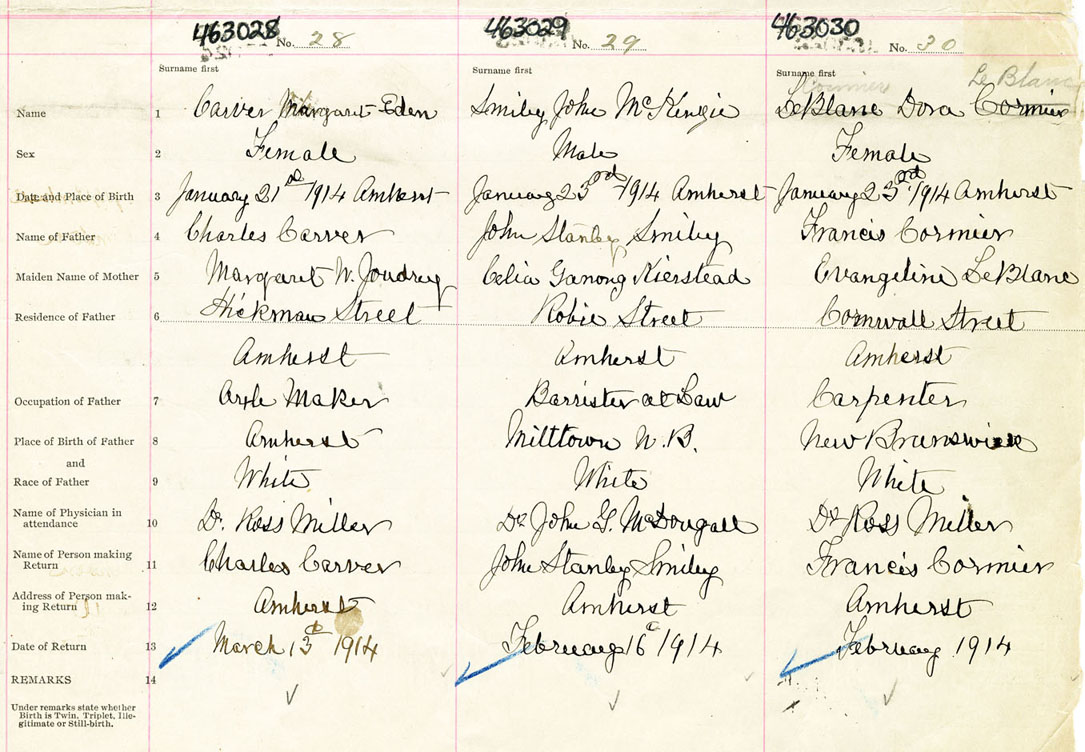 463028 No. 28 463029 No. 29 463030 No. 30
Surname first Surname first Surname first Cormier Le Blanc
Name 1 Carver Margaret Eden Smiley John McKenzie LeBlanc Dora Cormier
Sex 2 Female Male Female
Date and Place of Birth 3 January 21st 1914 Amherst January 23rd 1914 Amherst January 23rd 1914 Amherst
Name of Father 4 Charles Carver John Stanley Smiley Francis Cormier
Maiden Name of Mother 5 Margaret W. Joudrey Celia Ganong Kierstead Evangeline LeBlanc
Residence of Father 6 Hickman Street Robie Street Cornwall Street
Amherst Amherst Amherst
Occupation of Father 7 Axle Maker Barrister at Law Carpenter
Place of Birth of Father 8 Amherst Milltown N.B. New Brunswick
and
Race of Father 9 White White White
Name of Physician in
attendance 10 Dr. Ross Miller Dr John G. McDougall Dr Ross Miller
Name of Person making
Return 11 Charles Carver John Stanley Smiley Francis Cormier
Address of Person mak-
ing Return 12 Amherst Amherst Amherst
Date of Return 13 March 13th 1914 February 16th 1914 February 1914
REMARKS 14
Under remarks state whether
Birth is Twin, Triplet, Ille-
gitimate or Still-birth.